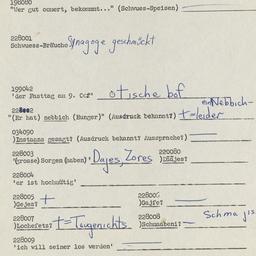 198080
"Wer gut oomert, bekommt..." (Schwues-Speisen)
228001
Schwuess-Bräuche Synagoge geschmückt
199042
'der Fasttag am 9. Ocf' tische bof
"(Er hat) nebbich (Hunger)" (Ausdruck bekannt?) t=leider
ein Nebbich-
034090
)Instanz gesagt? (Ausdruck bekannt? Aussprache?)
228003
'(grosse) Sorgen (haben)' Dajes, Zores
220080
228004
'er ist hochmütig'
228005
)Gejes? +
)Gajfe?
228007
)Lochefets? t=Taugenichts
228008
)Schmuabeni? Schma
228009
'ich will seiner los werden'